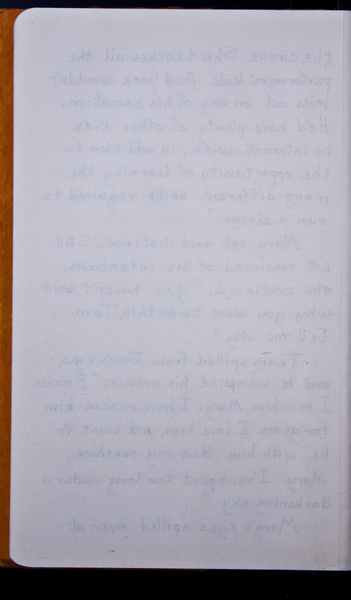 the circus. She teaches all the
performers' kids. And Jack wouldn't
miss out on any of his education.
He'd have plenty of other kids
to interact with, in addition to
the opportunity of learning the
many different skills required to
run a circus."
Mary sat and listened. Still
not convinced of his intentions,
she continued, "You haven't said
why you want to do this, Tom.
Tell me why."
Tears spilled from Tom's eyes,
and he whispered his answer. "Because
I miss him, Mary. I have missed him
for years. I love him, and want to
be with him. He's my sunshine,
Mary. I've spent too long under a
darkening sky."
Mary's eyes spilled over at